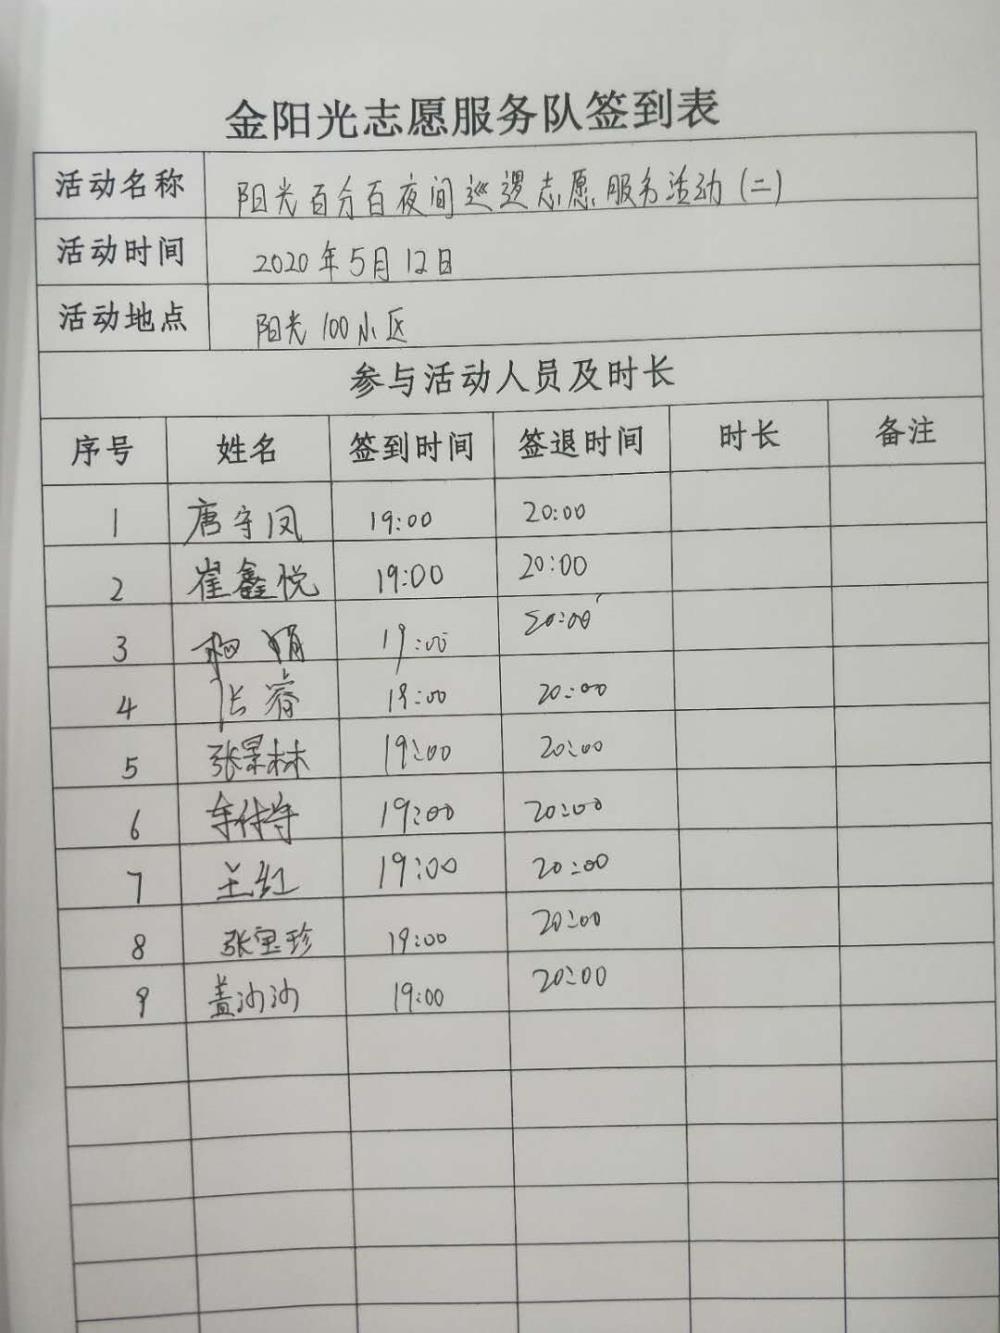 金阳光志愿服务队签到表
活动名称 阳光百分百夜间巡逻志愿服务活动(二)
活动时间 2020年5月12日
活动地点 阳光100小区
参与活动人员及时长
序号 姓名 签到时间 签退时间 时长 备注
1 唐守凤 19:00 20:00
2 崔鑫悦 19:00 20:00
3 娟 19:00 20:00
4 长睿 19:00 20:00
5 张景林 19:00 20:00
6 19:00 20:00
7 王红 19:00 20:00
8 张宝珍 19:00 20:00
9 盖沙沙 19:00 20:00